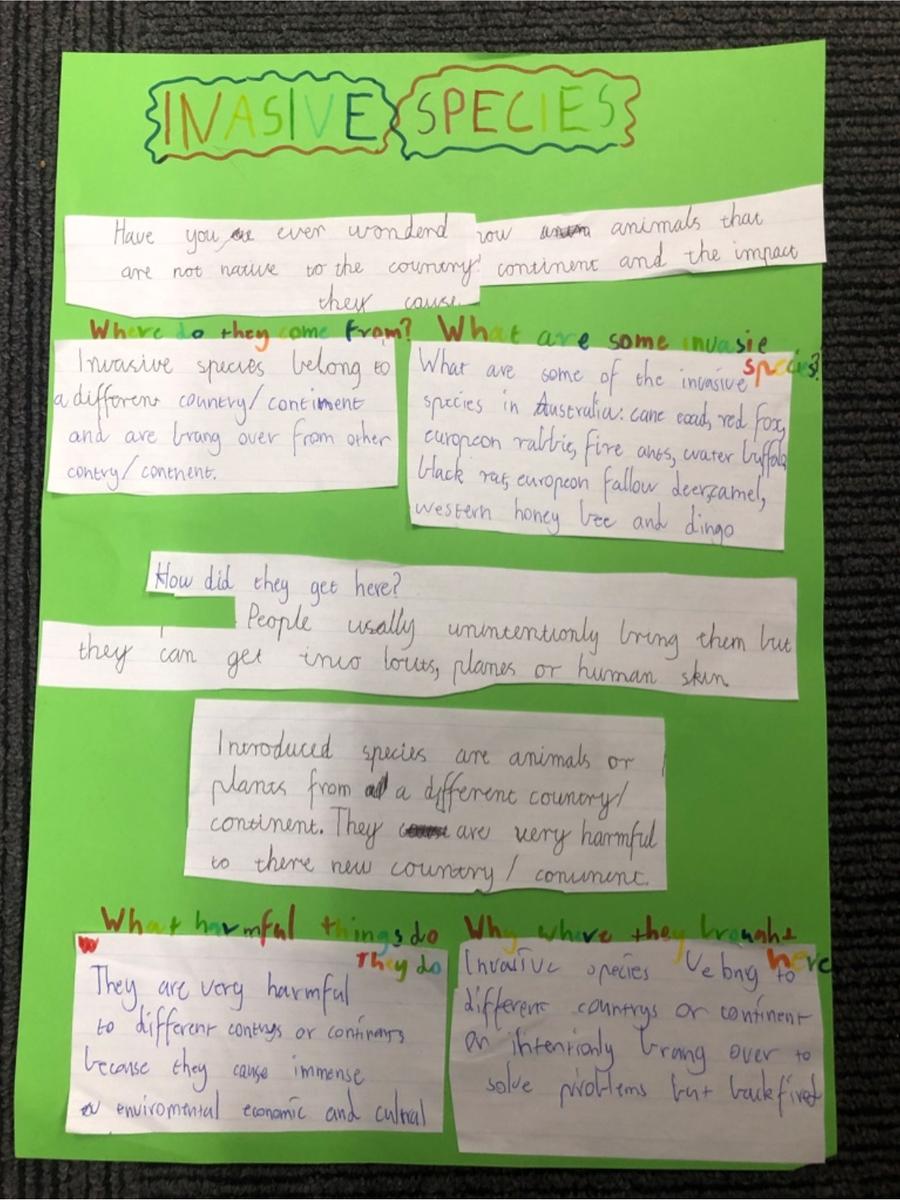 INVASIVE SPECIES
Have you ever wonderd how animals that
are not native to the country continent and the impact
they cause
Where do they come from?
Invasive species belong to
a different country/ contiment
and are brang over from other
contry/ continent.
What are some invasie
species?
What are some of the invasive
species in Australia: cane toad, red fox,
europeon rabbit, fire ants, water buffalo
black rat, europeon fallow deer, camel,
western honey bee and dingo
How did they get here?
People usally unintentionly bring them but
they can get into boats, planes or human skin.
Introduced species are animals or
plants from a different country/
continent. They are very harmful
to there new country / continent.
What harmful things do
They do
They are very harmful
to different contrys or continants
because they cause immense
enviromental economic and cultral
Why where they brought
here
Invasive species to
different countrys or continent
intentionly brang over to
solve problems but backfired